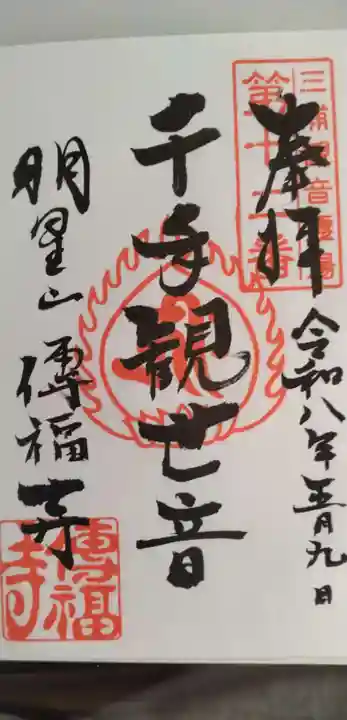 奉拝
令和八年五月九日
三浦観音霊場
第十二番
千手観世音
明星山 傳福寺
傳福寺